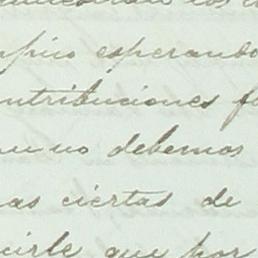 esperando
ontribuciones
no debemos
as ciertas de
cirle que por